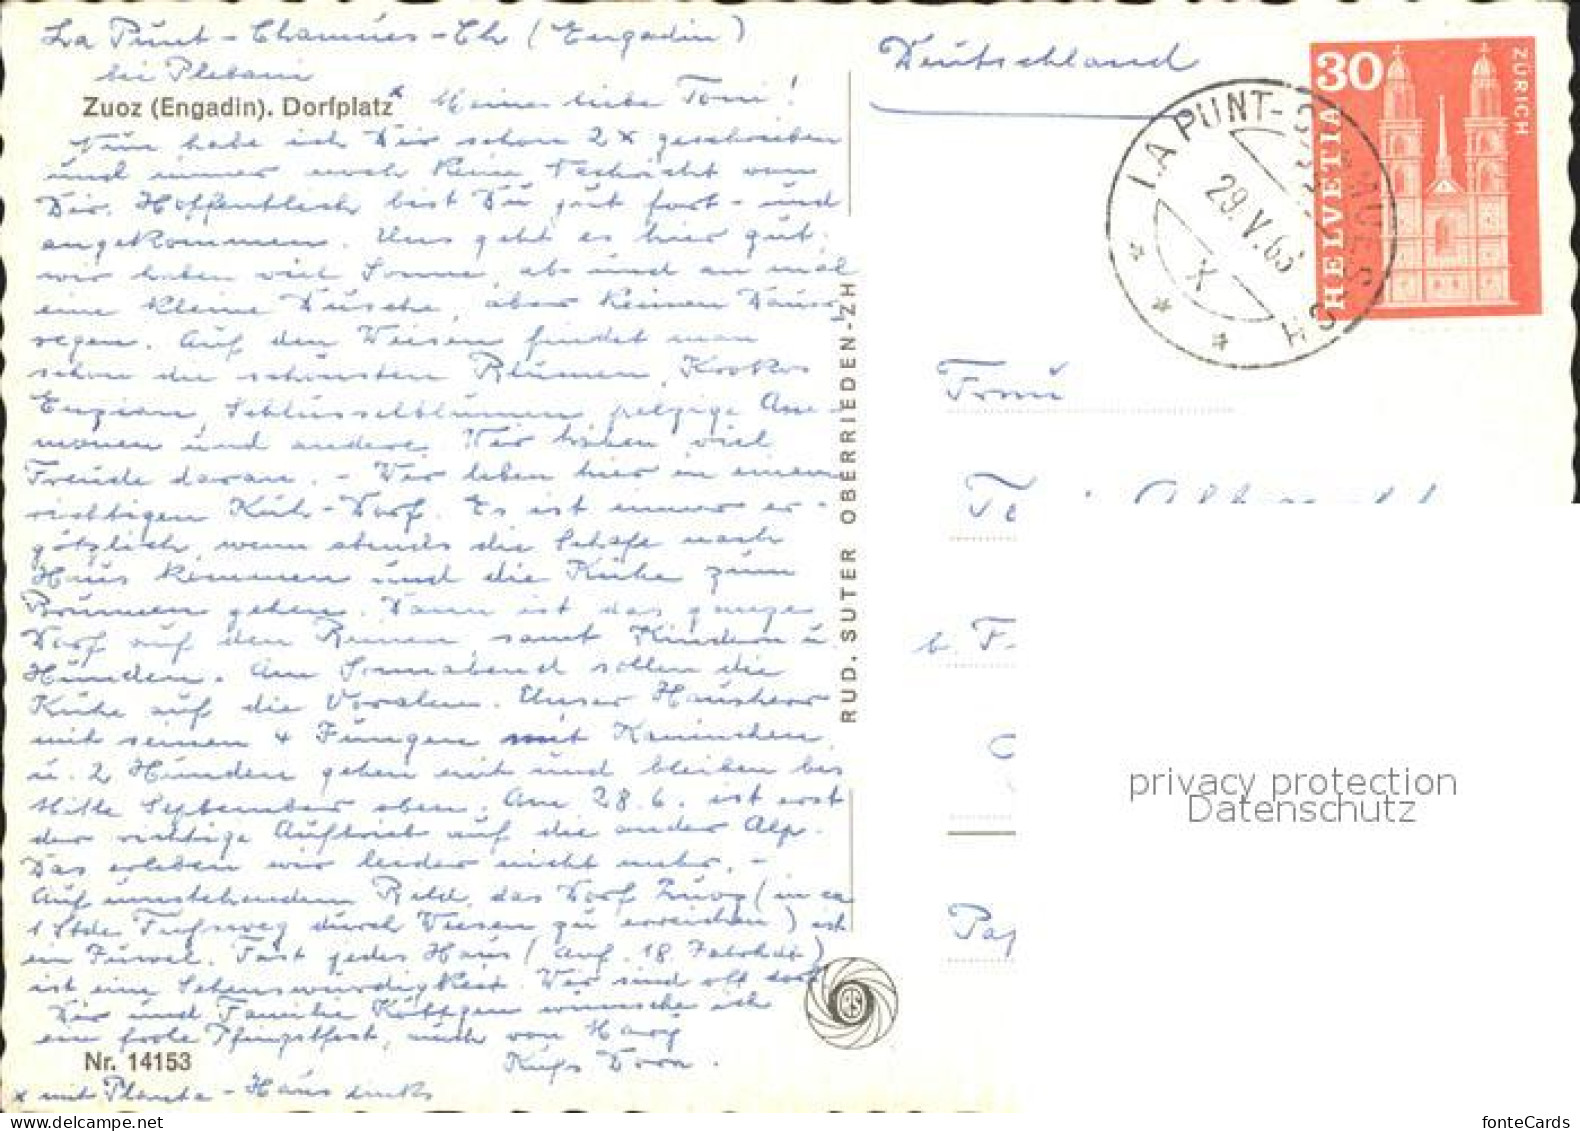 La Punt-Chamues-Ch (Engadin)
bei Plebani
Zuoz (Engadin). Dorfplatz x Meine liebe Toni!
Nun habe ich Dir schon 2x geschrieben
und immer noch keine Nachricht von
Dir. Hoffentlich bist Du gut fort- und
angekommen. Uns geht es hier gut,
wir haben viel Sonne, ab- und an mal
eine kleine Dusche, aber keinen Dauer-
regen. Auf den Wiesen findet man
schon die schönsten Blumen, Krokus
Enzian, Schlüsselblumen pelzige Ane-
monen und andere. Wir haben viel
Freude daran. - Wir leben hier in einem
richtigen Kuh-Dorf. Es ist immer er-
götzlich, wenn abends die Schafe nach
Haus kommen und die Kühe zum
Brunnen gehen. Dann ist das ganze
Dorf auf den Beinen, samt Kindern u.
Hunden. Am Sonnabend sollen die
Kühe auf die Voralm. Unser Hausherr
mit seinen 4 Jungen mit Kaninchen
u. 2 Hunden gehen mit und bleiben bis
Mitte September oben. Am 28.6. ist erst
der richtige Auftrieb auf die andere Alp.
Das erleben wir leider nicht mehr. -
Auf umstehendem Bild, das Dorf Zuoz (in ca
1 Stde Fußweg durch Wiesen zu erreichen) ist
ein Juwel. Fast jedes Haus (Anf. 18. Jahrhdt)
ist eine Sehenswürdigkeit. Wir sind oft dort
Dir und Familie Köttgen wünsche ich
ein frohes Pfingstfest, auch von Mary
Nr. 14153
Kuß Dora.
x mit Planta-Haus links
RUD. SUTER OBERRIEDEN-ZH
Deutschland
30
HELVETIA
ZÜRICH
LA PUNT-CHAMUES CH
29.V.63
X
Frau
b. F-
privacy protection
Datenschutz
fonteCards